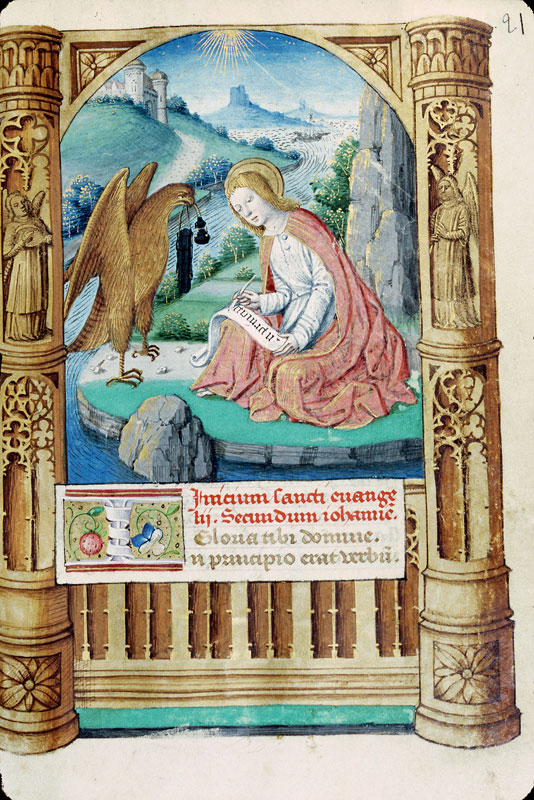 21
Inicium sancti euange
lij. Secundum iohanē.
Gloria tibi domine.
In principio erat verbū.